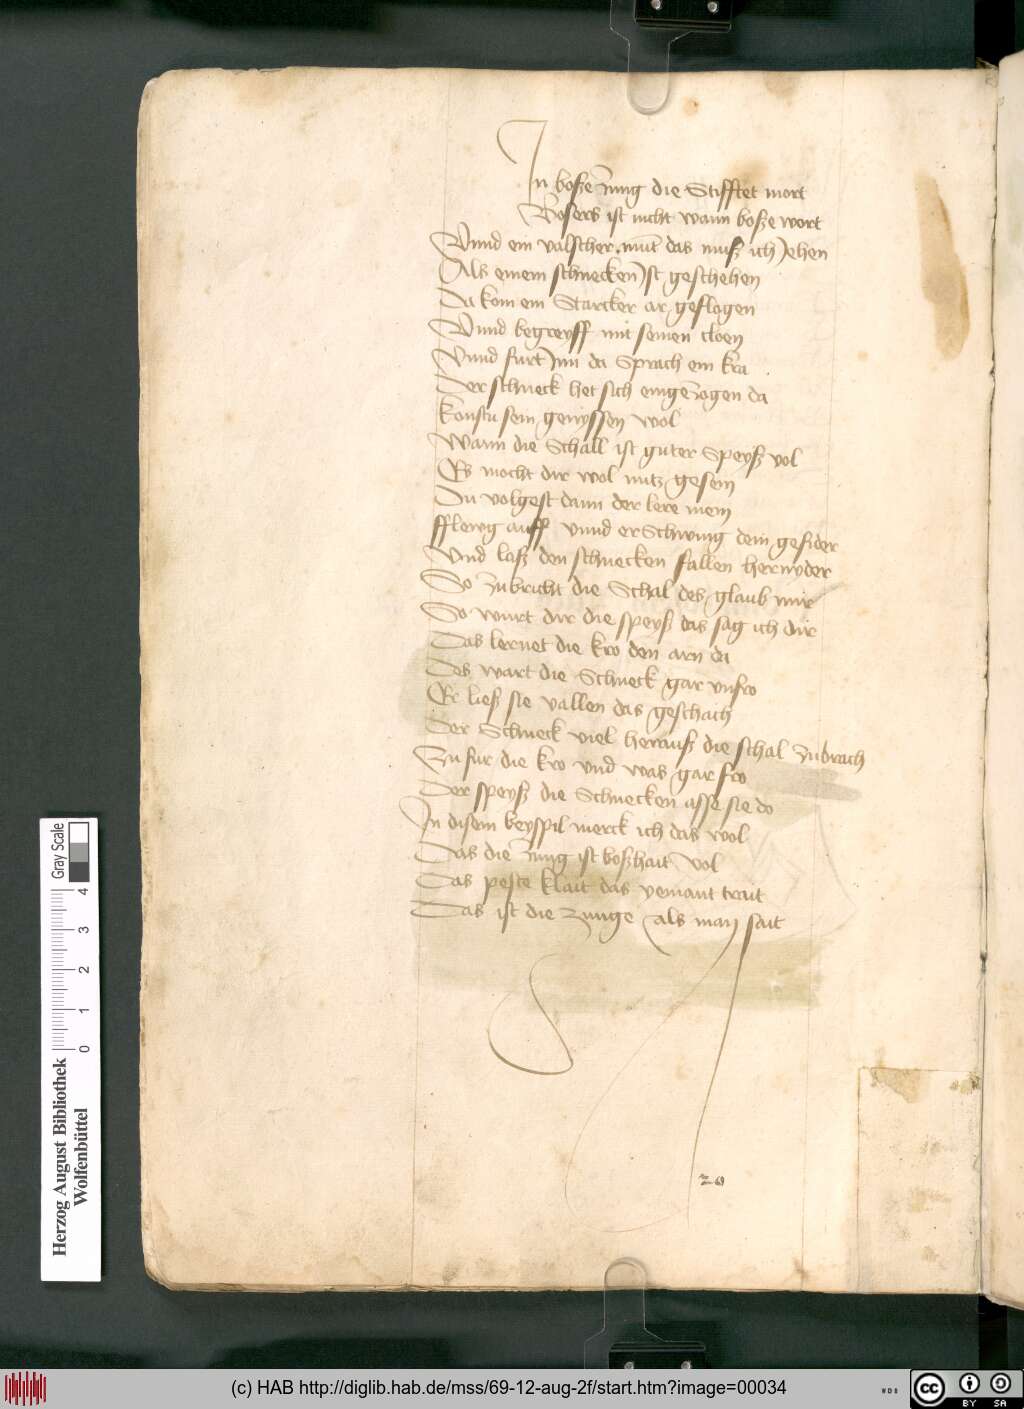 Ein boße zung die Stifftet mort
Bosers ist nicht wann boße wort
Vnnd ein valscher mut das muß ich Jehen
Als einem schnecken Jst geschehen
Da kom ein Starcker ar geflogen
Vnnd begreyff mit seinen cloen
Vnnd furt Jnn da Sprach ein kra
Der schneck het sich eingezogen da
Konstu sein genyssen wol
Wann die Schall ist guter Speyß vol
Es mocht dir wol nutz gesein
Du volgest dann der lere mein
fflewg auff vnnd erSchwing dein gefider
Vnd laß den schnecken fallen hernyder
So zubricht die Schal des glaub mir
So wurt dir die speyß das sag ich dir
Das lernet die kro den arn da
Des wart die Schneck gar vnfro
Er ließ sie vallen das geschach
Der Schneck viel herauß die schal zubrach
Zu fur die kro vnd was gar fro
Der speyß die Schnecken asse sie do
In disem beyspil merck ich das wol
Das die zung ist boßhait vol
Das peste klait das yemant treit
Das ist die zunge als man sait
20
Herzog August Bibliothek
Wolfenbüttel
0 1 2 3 4
Gray Scale
(c) HAB http://diglib.hab.de/mss/69-12-aug-2f/start.htm?image=00034
WDB
cc
BY SA